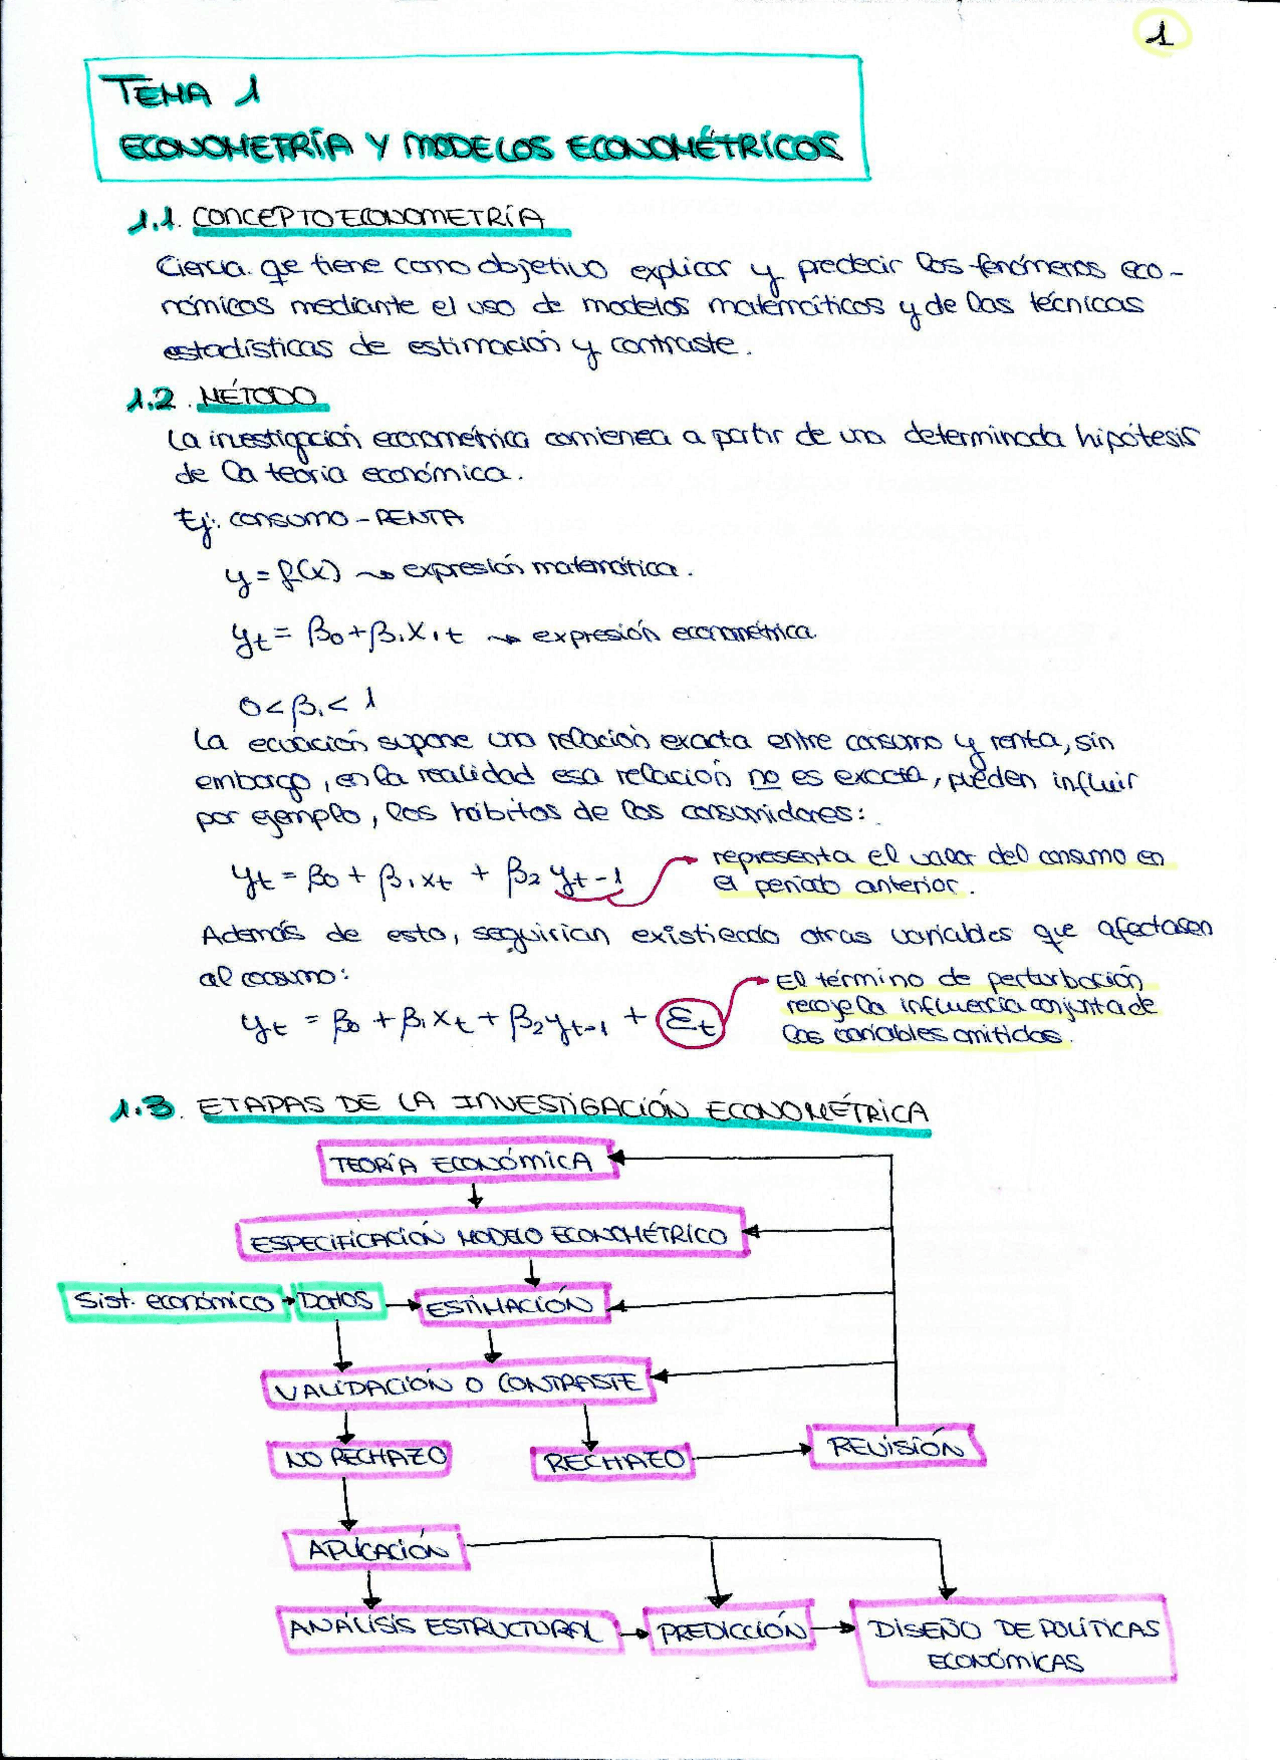 1
TEMA 1
ECONOMETRÍA Y MODELOS ECONOMÉTRICOS
1.1. CONCEPTO ECONOMETRÍA
Ciencia qe tiene como objetivo explicar y predecir los fenómenos eco-
nómicos mediante el uso de modelos matemáticos y de las técnicas
estadísticas de estimación y contraste.
1.2. MÉTODO
La investigación econométrica comienza a partir de una determinada hipótesis
de la teoría económica.
Ej: consumo - RENTA
y = f(x) → expresión matemática.
yt = β0 + β1X1t → expresión econométrica.
0 < β1 < 1
La ecuación supone una relación exacta entre consumo y renta, sin
embargo, en la realidad esa relación no es exacta, pueden influir
por ejemplo, los hábitos de los consumidores:
yt = β0 + β1xt + β2 yt-1
representa el valor del consumo en
el periodo anterior.
Además de esto, seguirían existiendo otras variables que afectasen
al consumo:
yt = β0 + β1xt + β2yt-1 + εt
El término de perturbación
recoge la influencia conjunta de
las variables omitidas.
1.3. ETAPAS DE LA INVESTIGACIÓN ECONOMÉTRICA
TEORÍA ECONÓMICA
ESPECIFICACIÓN MODELO ECONOMÉTRICO
Sist. económico → Datos → ESTIMACIÓN
VALIDACIÓN O CONTRASTE
NO RECHAZO
RECHAZO
REVISIÓN
APLICACIÓN
ANÁLISIS ESTRUCTURAL → PREDICCIÓN → DISEÑO DE POLÍTICAS
ECONÓMICAS